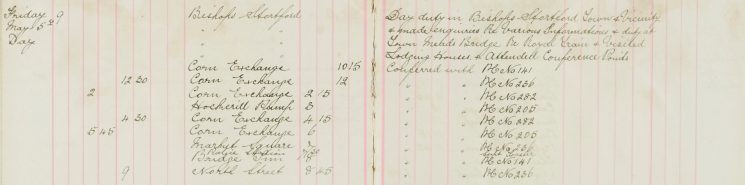 Friday 9 Bishops Stortford Day duty in Bishops Stortford Town & Vicinity
May 5th & made enquires Re Various Informations & duty at
Day Town Meads Bridge Re Royal Train & Visited
Lodging Houses & Attended Conference Points
Corn Exchange 10 15 Conferred with PC No 141
12 30 Corn Exchange 12 " " PC No 236
2 Corn Exchange 2 15 " " PC No 282
Hockerill Pump 3 " " PC No 205
4 30 Corn Exchange 4 15 " " PC No 282
5 45 Corn Exchange 6 " " PC No 205
Market Square 7 " " PC No 236
Police Station 7 30
Bridge Inn 8 " " PC No 141
9 North Street 8 45 " " PC No 236